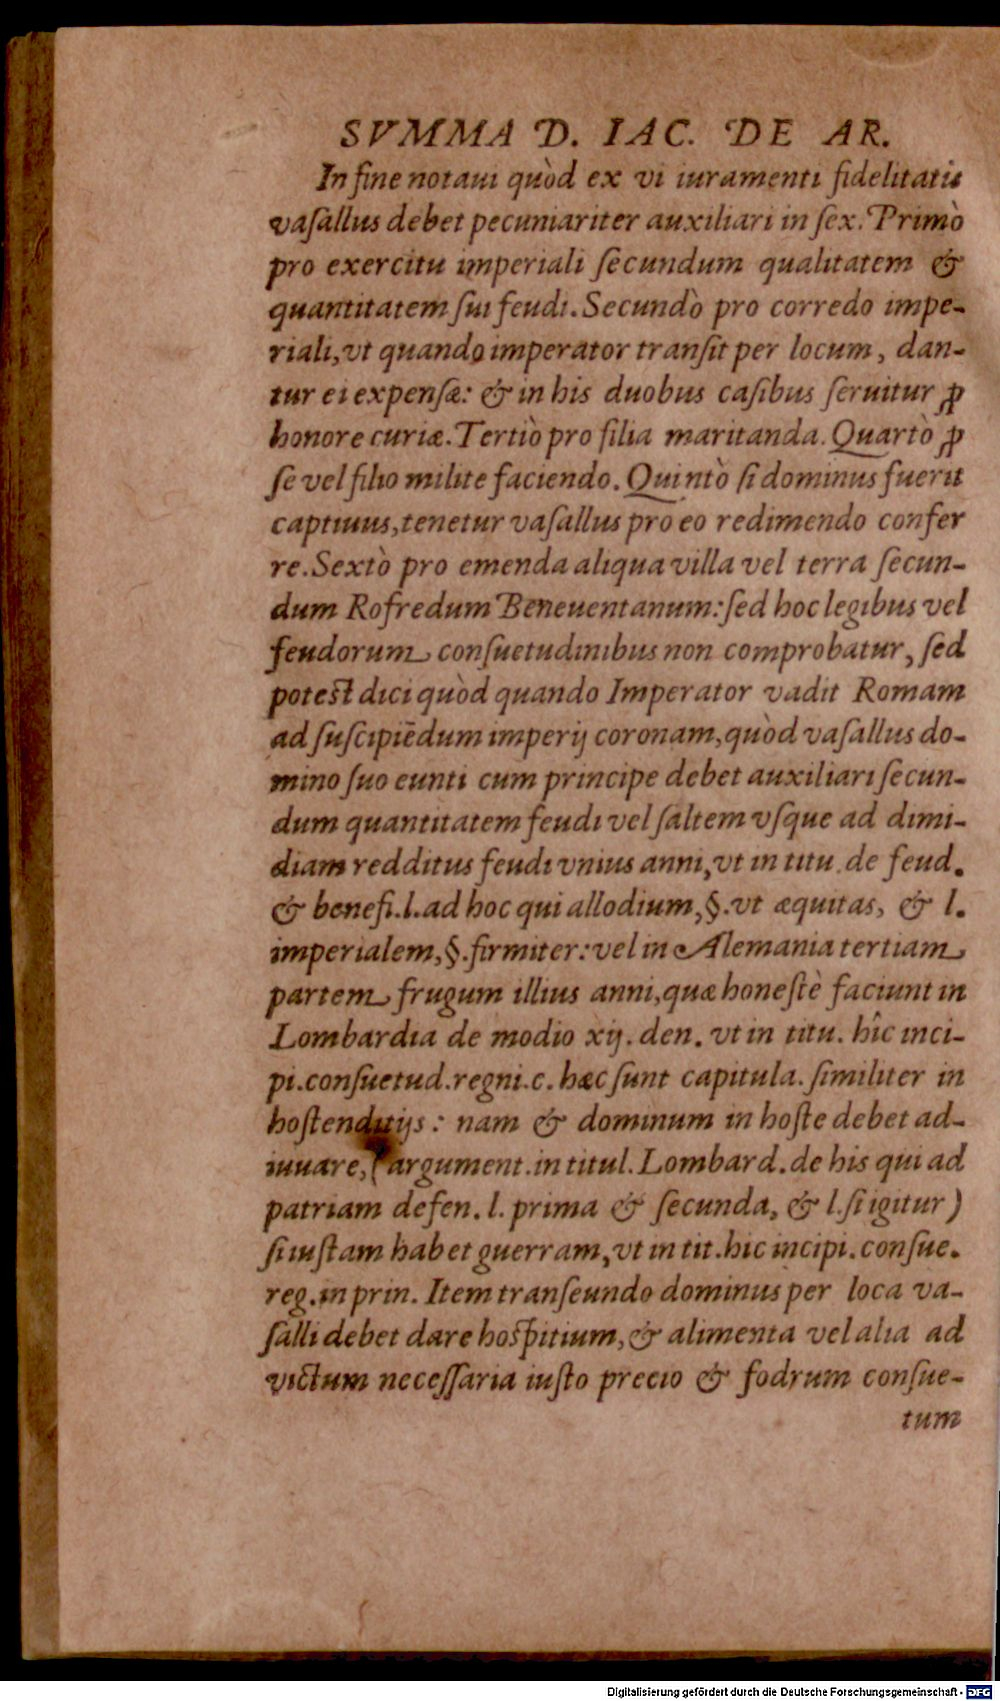 SVMMA D. IAC. DE AR.
In fine notaui quòd ex vi iuramenti fidelitatis
vaſallus debet pecuniariter auxiliari in ſex. Primò
pro exercitu imperiali ſecundum qualitatem &
quantitatem ſui feudi. Secundò pro corredo impe-
riali, vt quando imperator tranſit per locum, dan-
tur ei expenſæ: & in his duobus caſibus ſeruitur ꝓ
honore curiæ. Tertiò pro filia maritanda. Quartò ꝓ
ſe vel filio milite faciendo. Quintò ſi dominus fuerit
captiuus, tenetur vaſallus pro eo redimendo confer
re. Sextò pro emenda aliqua villa vel terra ſecun-
dum Rofredum Beneuentanum: ſed hoc legibus vel
feudorum conſuetudinibus non comprobatur, ſed
poteſt dici quòd quando Imperator vadit Romam
ad ſuſcipiēdum imperij coronam, quòd vaſallus do-
mino ſuo eunti cum principe debet auxiliari ſecun-
dum quantitatem feudi vel ſaltem vſque ad dimi-
diam redditus feudi vnius anni, vt in titu. de feud.
& benefi. l. ad hoc qui allodium, §. vt æquitas, & l.
imperialem, §. firmiter: vel in Alemania tertiam
partem frugum illius anni, quæ honeſtè faciunt in
Lombardia de modio xij. den. vt in titu. hîc inci-
pi. conſuetud. regni. c. hæc ſunt capitula. ſimiliter in
hoſtenditijs: nam & dominum in hoſte debet ad-
iuuare, (argument. in titul. Lombard. de his qui ad
patriam defen. l. prima & ſecunda, & l. ſi igitur)
ſi iuſtam habet guerram, vt in tit. hic incipi. conſue.
reg. in prin. Item tranſeundo dominus per loca va-
ſalli debet dare hoſpitium, & alimenta vel alia ad
victum neceſſaria iuſto precio & fodrum conſue-
tum
Digitalisierung gefördert durch die Deutsche Forschungsgemeinschaft - DFG